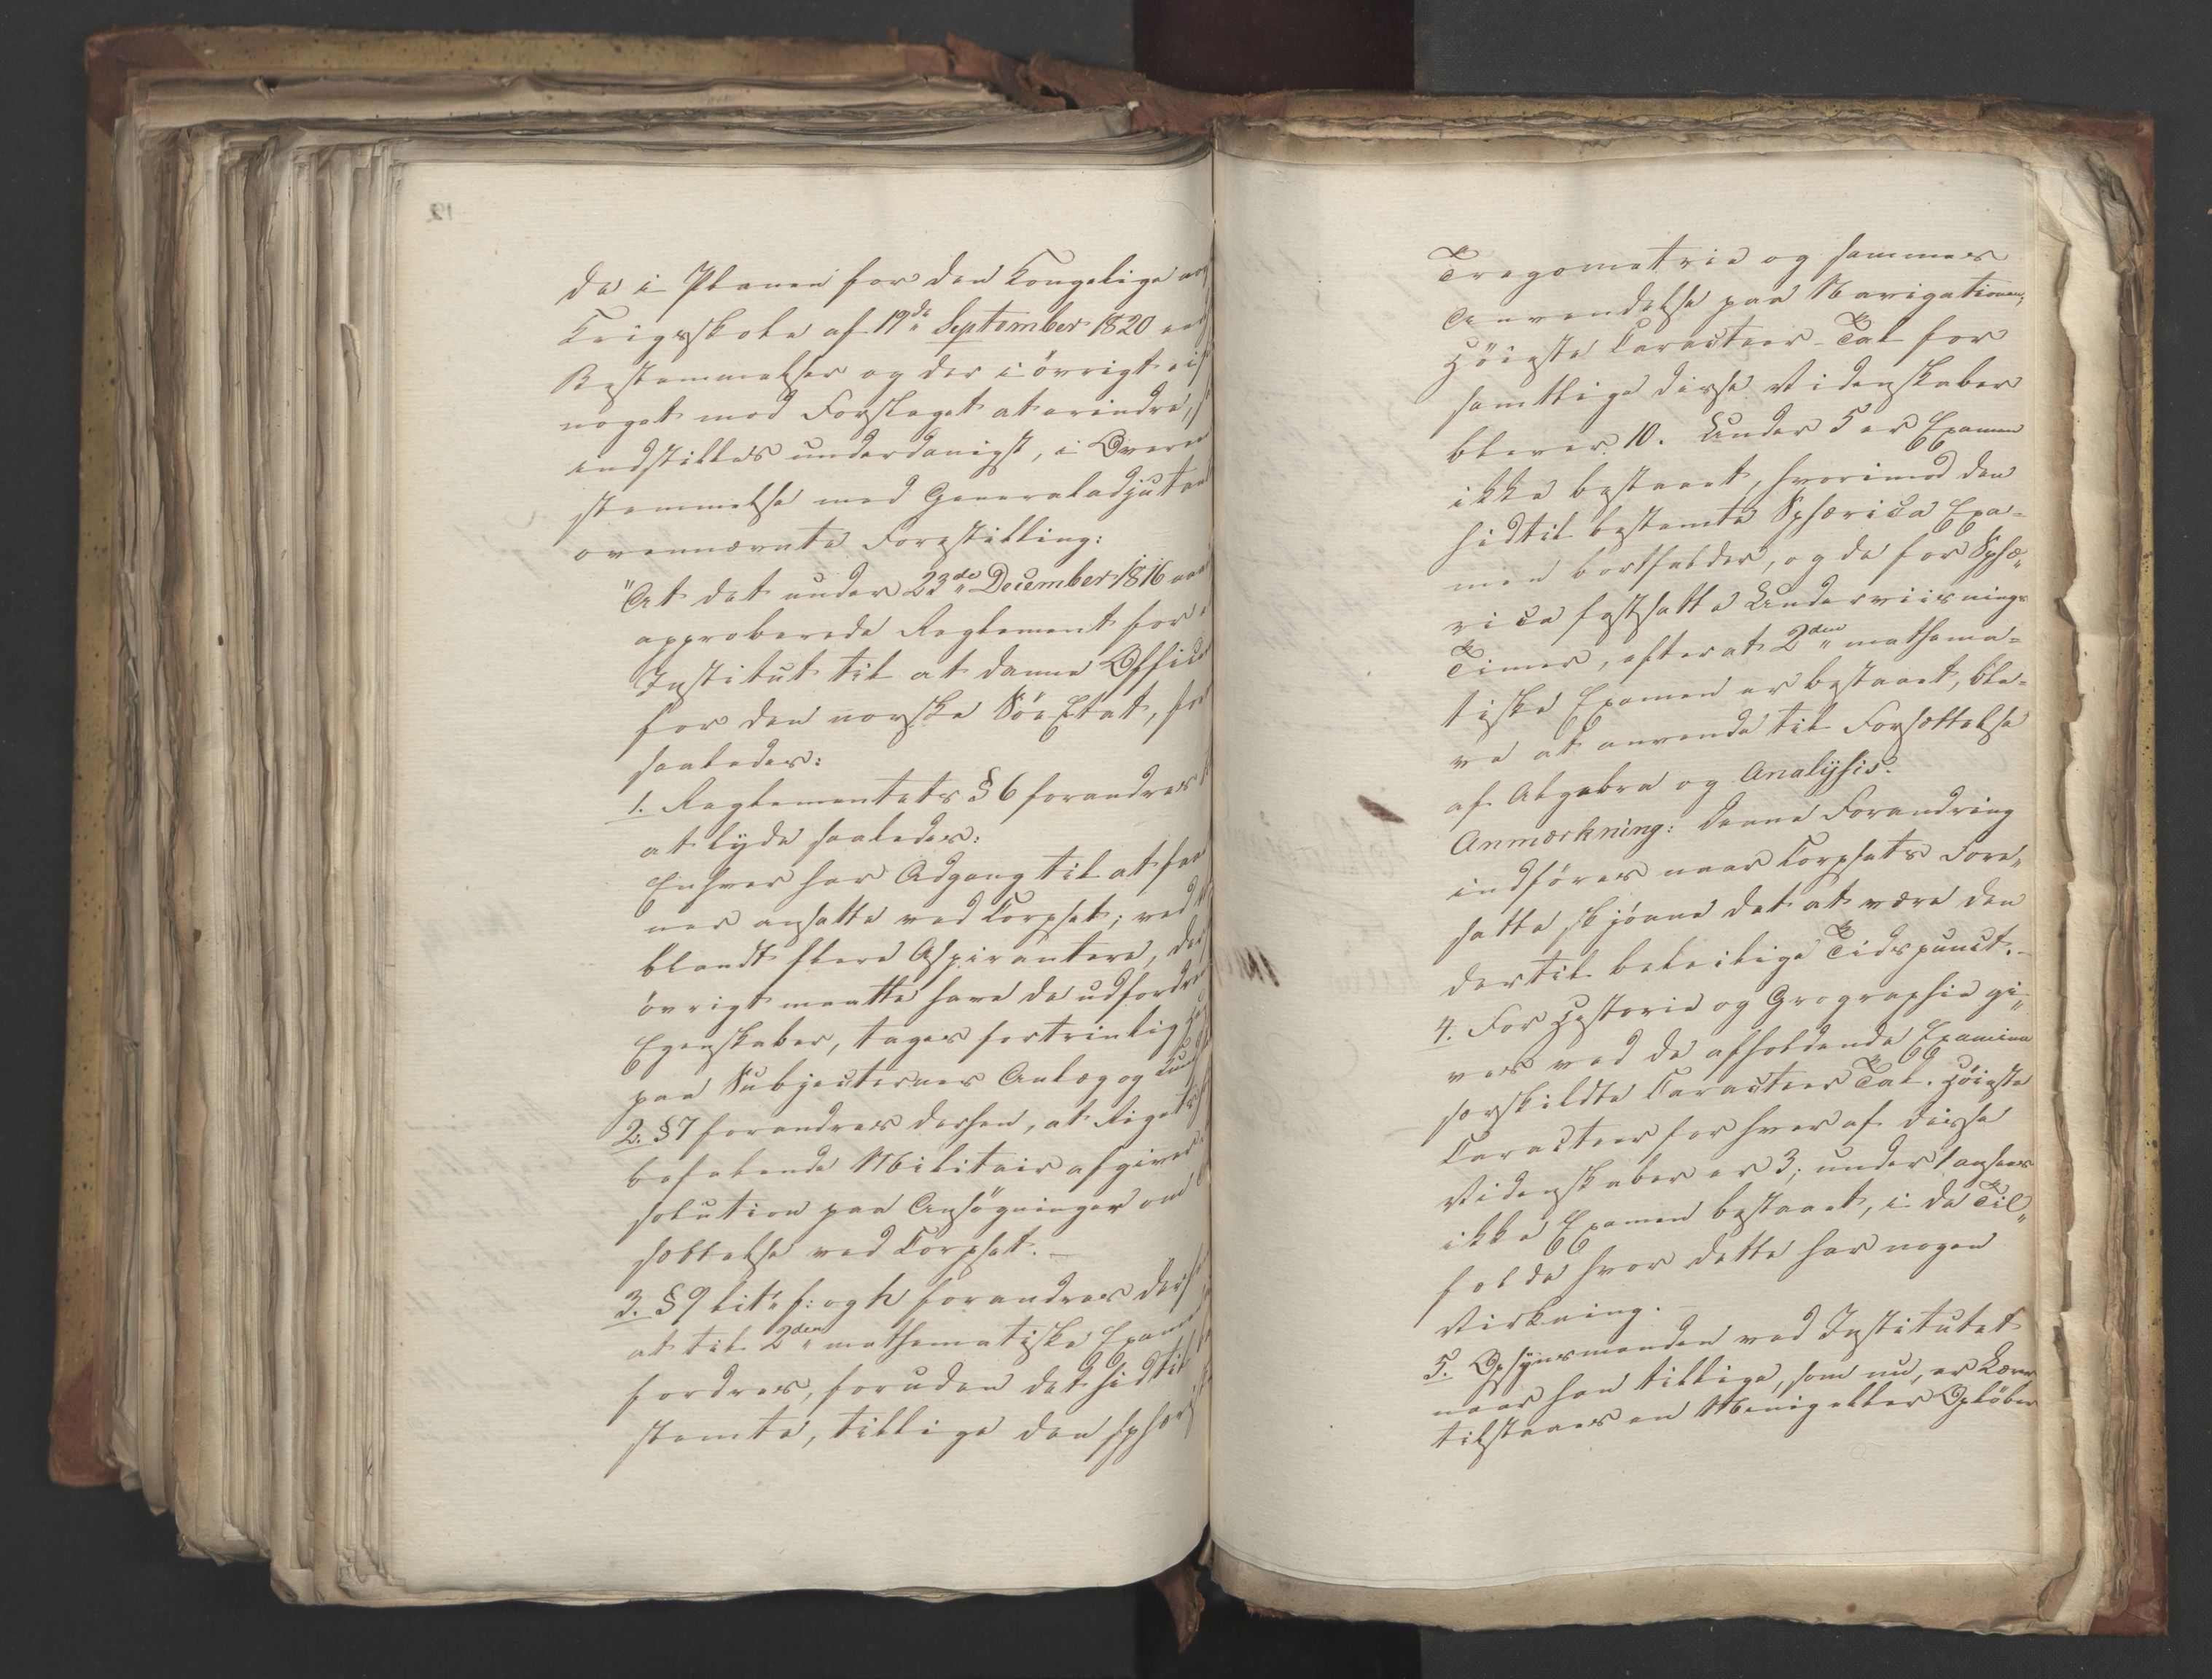 de i Planen for den Kongelige no
Krigsskole af 19de September 1820 an
Bestemmelser og der i övrigt ei
noget mod Forslaget at erindre,
indstilles underdanigst, i Overe
stemmelse med Generaladjutan
ovennævnte Forestilling:
"At det under 23de December 1816 naa
approberede Reglement for
Institut til at danne Offic
for den norske Söe Etat, for
saaledes:
1. Reglementets § 6 forandres
at lyde saaledes:
Enhver har Adgang til at faa
ner ansatte ved Corpset; ved
blandt flere Aspirantere, der
övrigt maatte have de udfordre
Egenskaber, tages fortrinlig
paa Subjecternes Anlæg og Kund
2. § 7 forandres derhen, at Rigets
befalende Militair afgiver
solution paa Ansögninger om
sættelse ved Corpset. —
3. § 9 litr f: og h forandres derh
at til 2den mathematiske Exam
fordres, foruden det hidtil
stemte, tillige den sphær
Tregometrie og sammes
Anvendelse paa Navigationen,
Höieste Caracteer-Tal for
samtlige disse Videnskaber
bliver 10. Under 5 er Examen
ikke bestaaet, hvorimod den
hidtil bestemte Sphærica Exa-
men bortfalder, og de for Sphæ„
rica fastsatte Underviisnings
Timer, efterat 2den mathema-
tiske Examen er bestaaet, bli-
ve at anvende til Forsættelse
af Algebra og Analysis.
Anmærkning: denne Forandring
indföres naar Corpsets Fore„
satte skjönne det at være den
dertil beleilige Tidspunct. —
4. For Historie og Geographie gi„
ves ved de afholdende Examina
særskildte Caracteer Tal. Höieste
Caracteer for hver af disse
Videnskaber er 3; under 1 ansees
ikke Examen bestaaet, i de Til„
fælde hvor dette har nogen
Virkning. —
5. Opsynsmanden ved Institutet
naar han tillige, som nu, er Lærer
tilstaaes en Menig eller Oplöber